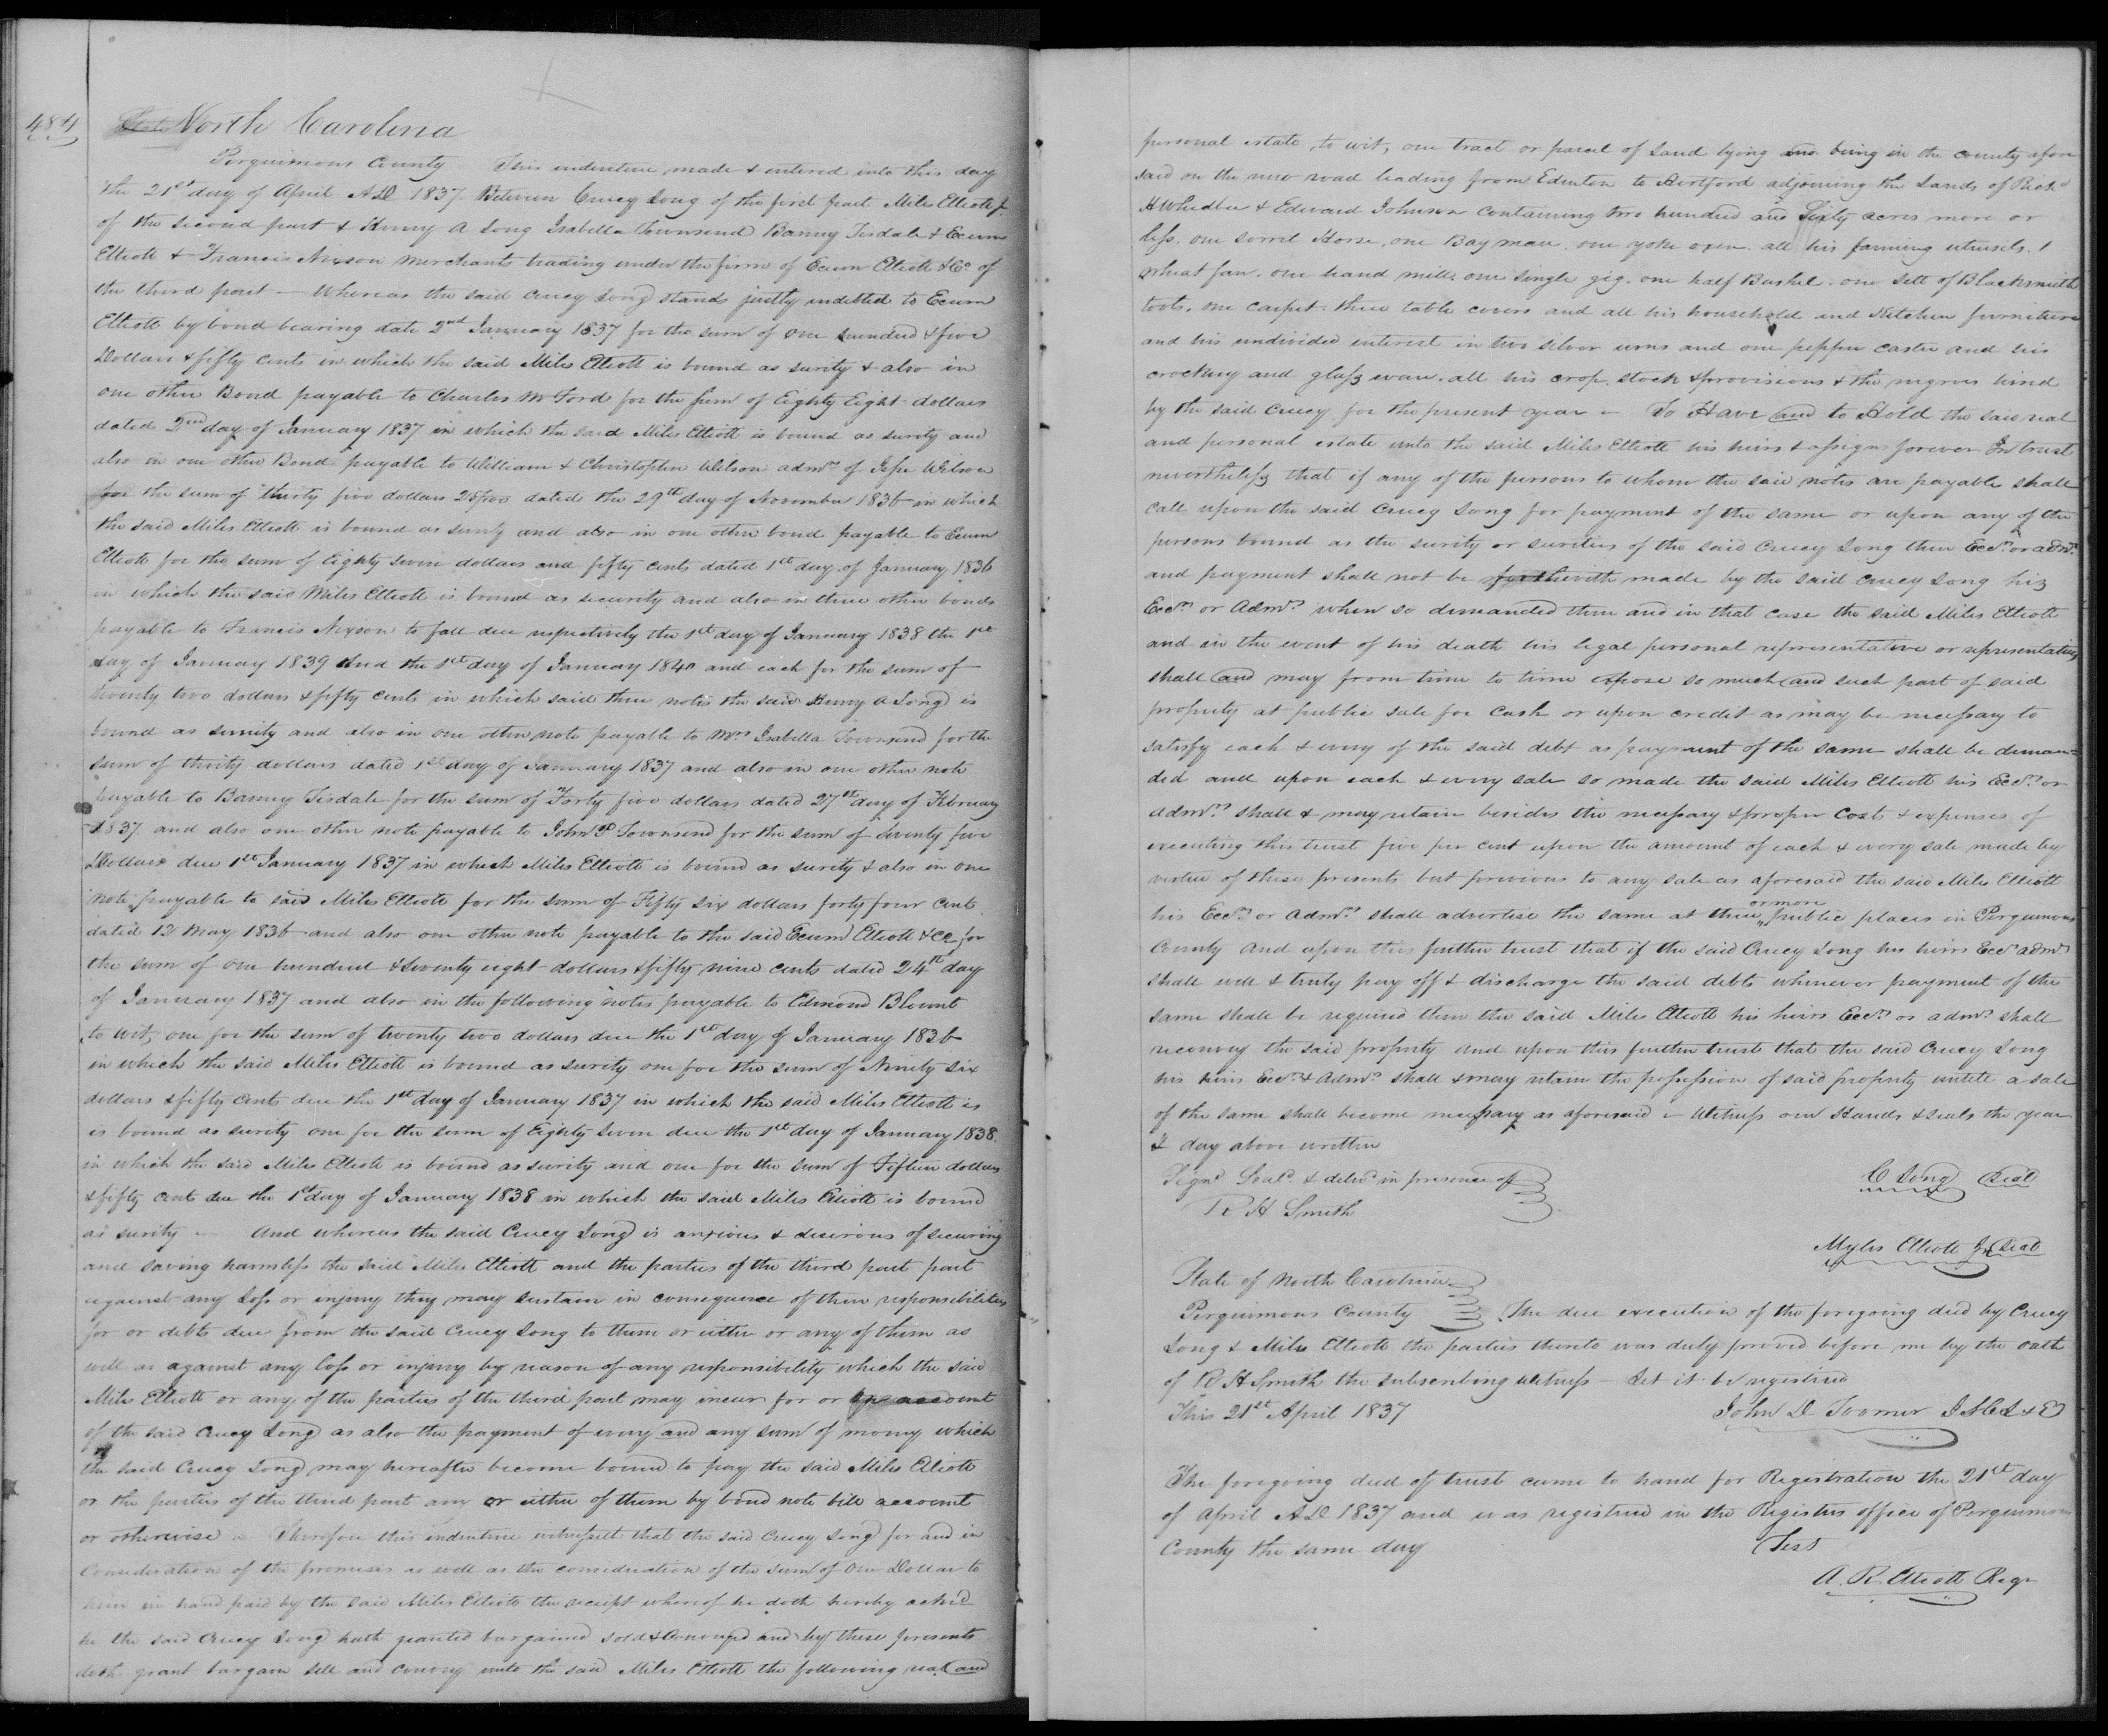 484
State North Carolina
Perquimons County This indenture made & entered into this day
the 21st day of April AD 1837 Between Crucy Long of the first part Miles Elliott Jr
of the second part & Henry A Long Isabella Townsend Barny Tisdale & Ecum
Elliott & Francis Nixson merchants trading under the firm of Ecum Elliott & Co of
the third part — Whereas the said Crucy Long stands justly indebted to Ecum
Elliott by bond bearing date 2nd January 1837 for the sum of one hundred & five
Dollars & fifty cents in which the said Miles Elliott is bound as surity & also in
one other Bond payable to Charles W Ford for the sum of Eighty Eight dollars
dated 2nd day of January 1837 in which the said Miles Elliott is bound as surity and
also in one other Bond payable to William & Christopher Wilson admrs of Jesse Wilson
for the sum of thirty five dollars 25/100 dated the 29th day of November 1836 in which
the said Miles Elliott is bound as surity and also in one other bond payable to Ecum
Elliott for the sum of Eighty seven dollars and fifty cents dated 1st day of January 1836
in which the said Miles Elliott is bound as security and also in three other bonds
payable to Francis Nixson to fall due respectively the 1st day of January 1838 the 1st
day of January 1839 And the 1st day of January 1840 and each for the sum of
twenty two dollars & fifty cents in which said three notes the said Henry A Long is
bound as surity and also in one other note payable to Mrs Isabella Townsend for the
sum of thirty dollars dated 1st day of January 1837 and also in one other note
payable to Barney Tisdale for the sum of Forty five dollars dated 27th day of February
1837 and also one other note payable to John P Townsend for the sum of seventy five
Dollars due 1st January 1837 in which Miles Elliott is bound as surity & also in one
note payable to said Miles Elliott for the sum of Fifty six dollars forty four cents
dated 12 May 1836 and also one other note payable to the said Ecum Elliott & Co for
the sum of one hundred & seventy eight dollars & fifty nine cents dated 24th day
of January 1837 and also in the following notes payable to Edmond Blount
to wit, one for the sum of twenty two dollars due the 1st day of January 1836
in which the said Miles Elliott is bound as surity one for the sum of Ninity six
dollars & fifty cents due the 1st day of January 1837 in which the said Miles Elliott is
is bound as surity one for the sum of Eighty seven due the 1st day of January 1838.
in which the said Miles Elliott is bound as surity and one for the sum of Fifteen dollars
& fifty cents due the 1st day of January 1838 in which the said Miles Elliott is bound
as surity — And whereas the said Crucy Long is anxious & desirous of securing
and saving harmless the said Miles Elliott and the parties of the third part part
against any loss or injury they may sustain in consequence of their responsibilities
for or debts due from the said Crucy Long to them or either or any of them as
well as against any loss or injury by reason of any responsibility which the said
Miles Elliott or any of the parties of the third part may incur for or account
of the said Crucy Long as also the payment of every and any sum of money which
the said Crucy Long may hereafter become bound to pay the said Miles Elliott
or the parties of the third part any or either of them by bond note bill account
or otherwise — Therefore this indenture witnesseth that the said Crucy Long for and in
consideration of the premises as well as the consideration of the sum of One Dollar to
him in hand paid by the said Miles Elliott the receipt whereof he doth hereby acknd
he the said Crucy Long hath granted bargained sold & Conveyed and by these presents
doth grant bargain sell and convey unto the said Miles Elliott the following real and
personal estate, to wit, one tract or parcel of Land lying and being in the county afore
said on the new road leading from Edenton to Hertford adjoining the Lands of Richd
H Whedbee & Edward Johnson containing two hundred and Sixty acres more or
less. one sorrel Horse, one Bay mare. one yoke oxen. all his farming utensils. 1
wheat fan. one hand mill. one single gig. one half Bushel. one sett of Blacksmith
tools. one carpet. three table covers and all his household and Kitchen furniture
and his undivided interest in two silver urns and one pepper caster and his
crockery and glass ware. all his crop stock & provisions & the negroes hired
by the said Crucy for the present year — To Have and to Hold the said real
and personal estate unto the said Miles Elliott his heirs & assigns forever In trust
nevertheless that if any of the persons to whom the said notes are payable shall
call upon the said Crucy Long for payment of the same or upon any of the
persons bound as the surity or surities of the said Crucy Long their Excrs or admrs
and payment shall not be forthwith made by the said Crucy Long his
Excrs or Admrs when so demanded then and in that case the said Miles Elliott
and in the event of his death his legal personal representative or representatives
shall and may from time to time expose so much and such part of said
property at public sale for cash or upon credit as may be necessary to
satisfy each & every of the said debt as payment of the same shall be deman-
ded and upon each & every sale so made the said Miles Elliott his Excrs or
admrs shall & may retain besides the necessary & proper Costs & expenses of
executing this trust five per cent upon the amount of each & every sale made by
virtue of these presents but previous to any sale as aforesaid the said Miles Elliott
his Excrs or Admrs shall advertise the same at three or more public places in Perquimons
County And upon this further trust that if the said Crucy Long his heirs Excrs admrs
shall well & truly pay off & discharge the said debts whenever payment of the
same shall be required then the said Miles Elliott his heirs Excrs or admrs shall
reconvey the said property and upon this further trust that the said Crucy Long
his heirs Excrs & Admrs shall & may retain the possession of said property untill a sale
of the same shall become necessary as aforesaid — Witness our Hands & seals the year
& day above written
Signd Seald & delivd in presence of
C Long Seal
R H Smith
Myles Elliott Jr Seal
State of North Carolina
Perquimons County The due execution of the foregoing deed by Crucy
Long & Miles Elliott the parties thereto was duly proved before me by the oath
of R H Smith the subscribing witness — Let it be registered
This 21st April 1837 John D Toomer J S C L & E
The foregoing deed of trust came to hand for Registration the 21st day
of April AD 1837 and was registered in the Registers office of Perquimons
County the same day Test
A. R. Elliott Regr